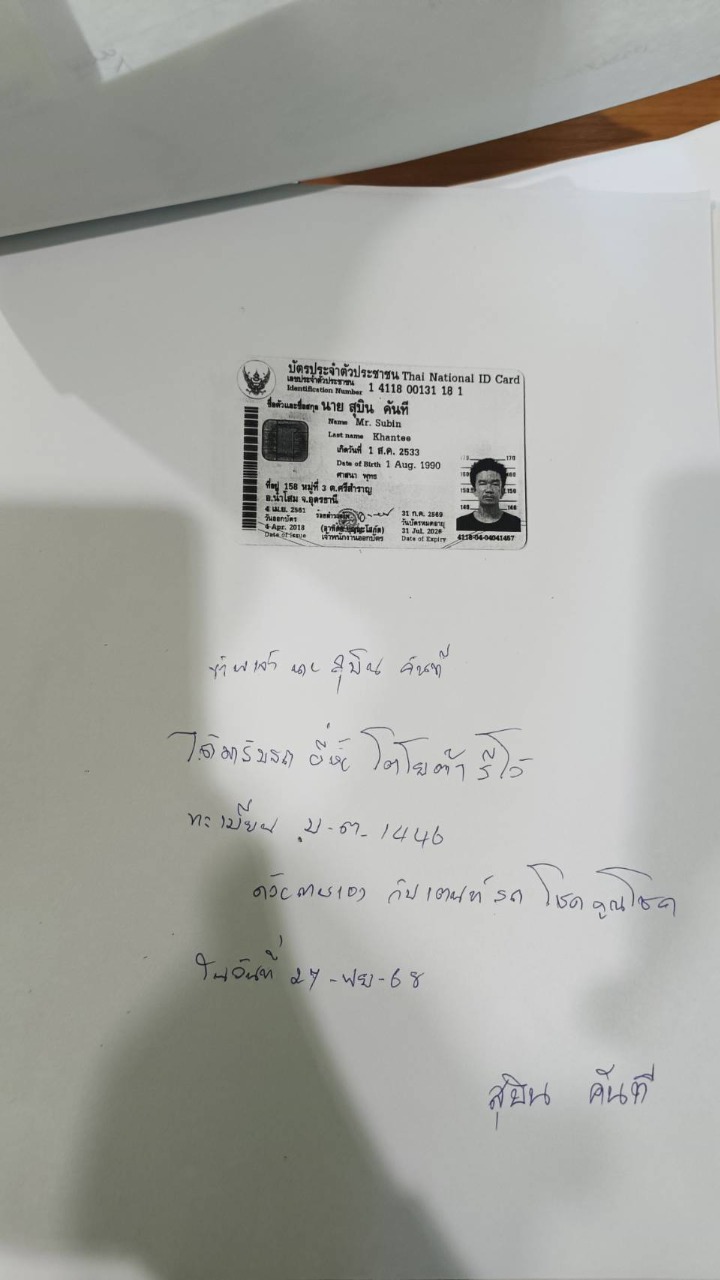 บัตรประจำตัวประชาชน Thai National ID Card
เลขประจำตัวประชาชน
Identification Number 1 4118 00131 18 1
ชื่อตัวและชื่อสกุล นาย สุบิน คันที
Name Mr. Subin
Last name Khantee
เกิดวันที่ 1 ส.ค. 2533
Date of Birth 1 Aug. 1990
ศาสนา พุทธ
ที่อยู่ 158 หมู่ที่ 3 ต.ศรีสำราญ
อ.น้ำโสม จ.อุดรธานี
4 เม.ย. 2561
วันออกบัตร
4 Apr. 2018
Date of Issue
เจ้าพนักงานออกบัตร
31 ก.ค. 2569
วันบัตรหมดอายุ
31 Jul. 2026
Date of Expiry
4118-04-04041457
ข้าพเจ้า นาย สุบิน คันที
ได้มารับรถ ยี่ห้อ โตโยต้า รีโว้
ทะเบียน 1446
ด้วยตนเอง กับเตนท์รถ โชคคูณโชค
ในวันที่ 27-พย-68
สุบิน คันที